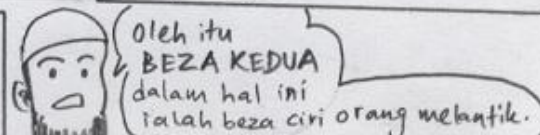 Oleh itu
BEZA KEDUA
dalam hal ini
ialah beza ciri orang melantik.